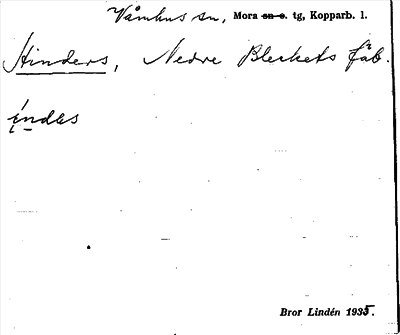 Våmhus sn, Mora sn o. tg, Kopparb. l.
Hinders, Nedre Bleckets fäb.
éndas
Bror Lindén 1935.